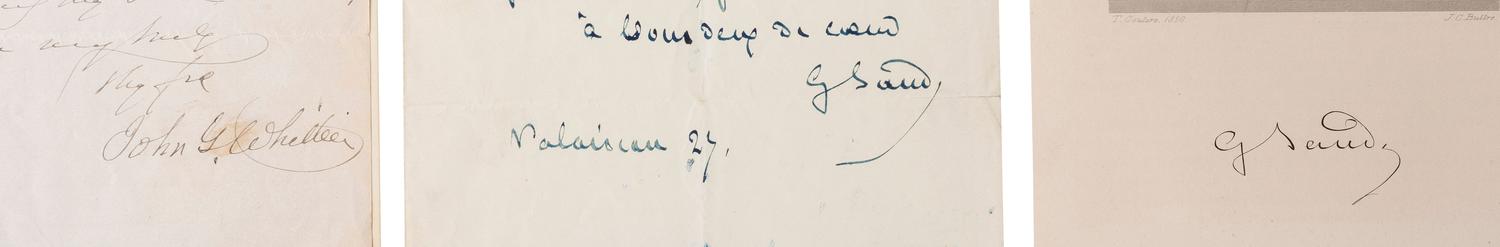 Thy frd
John G. Whittier
à vous deux de cœur
G Sand
Palaiseau 27,
T. Couture. 1850
J.C. Buttre
G Sand.